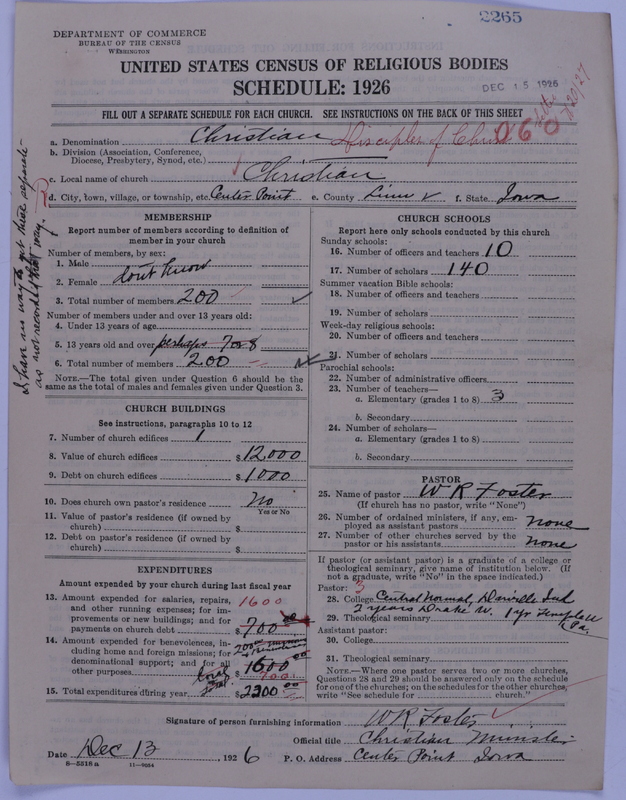 2265
DEPARTMENT OF COMMERCE
BUREAU OF THE CENSUS
WASHINGTON
UNITED STATES CENSUS OF RELIGIOUS BODIES
SCHEDULE: 1926
DEC 15 1926
FILL OUT A SEPARATE SCHEDULE FOR EACH CHURCH. SEE INSTRUCTIONS ON THE BACK OF THIS SHEET
a. Denomination Christian Disciples of Christ 060
b. Division (Association, Conference,
Diocese, Presbytery, Synod, etc.)
c. Local name of church Christian
d. City, town, village, or township, etc. Center Point e. County Linn f. State Iowa
MEMBERSHIP
Report number of members according to definition of
member in your church
Number of members, by sex:
1. Male
dont know
2. Female
3. Total number of members 200
Number of members under and over 13 years old:
4. Under 13 years of age
5. 13 years old and over perhaps 7 or 8
6. Total number of members 200
NOTE.—The total given under Question 6 should be the
same as the total of males and females given under Question 3.
I have no way to get these separate
as not recorded that way.
CHURCH BUILDINGS
See instructions, paragraphs 10 to 12
7. Number of church edifices 1
8. Value of church edifices $12,000
9. Debt on church edifices $1000
10. Does church own pastor's residence No
Yes or No
11. Value of pastor's residence (if owned by
church) $
12. Debt on pastor's residence (if owned by
church) $
EXPENDITURES
Amount expended by your church during last fiscal year
13. Amount expended for salaries, repairs, 1600
and other running expenses; for im-
provements or new buildings; and for
payments on church debt $700
14. Amount expended for benevolences, in-
cluding home and foreign missions; for
denominational support; and for all
other purposes 1600 00
700
15. Total expenditures during year $2300 00
CHURCH SCHOOLS
Report here only schools conducted by this church
Sunday schools:
16. Number of officers and teachers 10
17. Number of scholars 140
Summer vacation Bible schools:
18. Number of officers and teachers
19. Number of scholars
Week-day religious schools:
20. Number of officers and teachers
21. Number of scholars
Parochial schools:
22. Number of administrative officers
23. Number of teachers—
a. Elementary (grades 1 to 8) 3
b. Secondary
24. Number of scholars—
a. Elementary (grades 1 to 8)
b. Secondary
PASTOR
25. Name of pastor W R Foster
(If church has no pastor, write "None")
26. Number of ordained ministers, if any, em-
ployed as assistant pastors none
27. Number of other churches served by the
pastor or his assistants none
If pastor (or assistant pastor) is a graduate of a college or
theological seminary, give name of institution below. (If
not a graduate, write "No" in the space indicated.)
Pastor: 3
28. College Central Normal, Danville Ind
2 years Drake U. 1 yr Temple U
29. Theological seminary Pa.
Assistant pastor:
30. College
31. Theological seminary
NOTE.—Where one pastor serves two or more churches,
Questions 28 and 29 should be answered only on the schedule
for one of the churches; on the schedules for the other churches,
write "See schedule for church."
Signature of person furnishing information W R Foster
Official title Christian Minister
Date Dec 13, 1926 P. O. Address Center Point Iowa
8—5518 a 11—9084